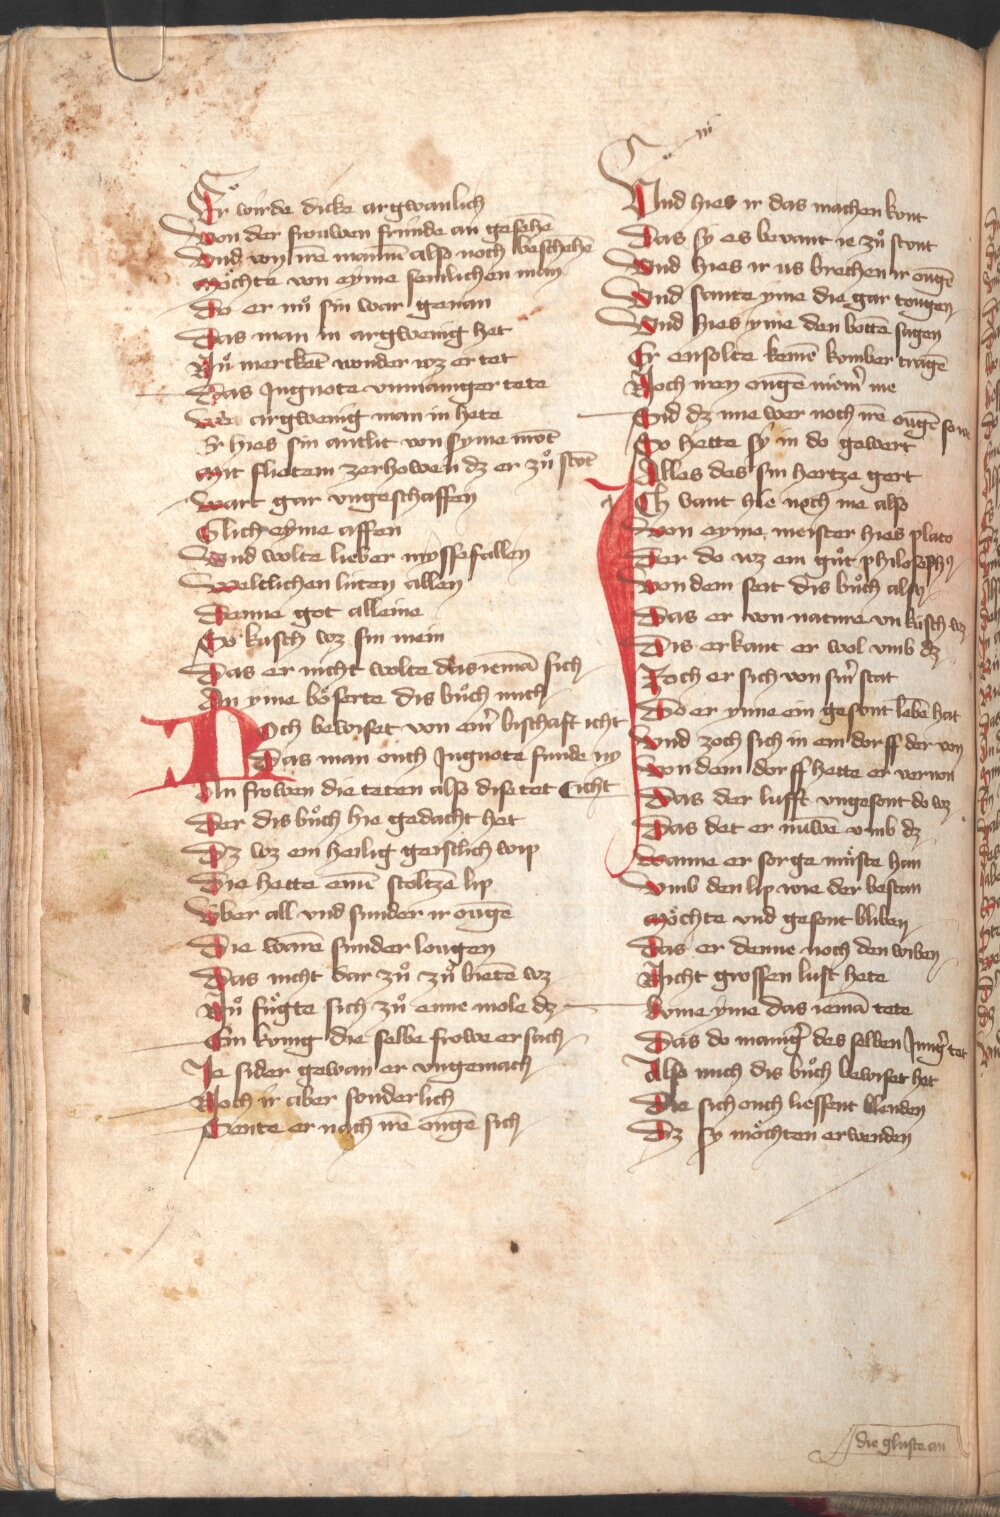 Er würde dicke argwanlich
Von der frouwen fründe an gesehē
Vnd von irē mannē also noch beschehē
Möchte von eyme semlichen man
Do er nů sin war genan
Das man in argwenig het
Nů merckēt wonder wz er tet
Das Jngnote vnmaniger tete
Wer argwenig man in hete
Er hies sin antlit von syme
Mit flietem zerhowen dz er zů stūt
Wart gar vngeschaffen
Glich eyme affen
Vnd wolte lieber myssefallen
Weltlichen lüten allen
Denne got alleine
So küsch wz sin mein
Das er nicht wolte das iemā sich
An yme böserte dis bůch mich
Noch bewiset von eim̄ bischaft icht
Das man ouch Jngnote funde ny
An frowen die teten also dise tet Cicht
Der dis bůch hie gedacht het
Dz wz ein heilig geistlich wip
Die hette einē stoltzē lip
Vber all vnd sunder ir ougē
Die warē sunder lougen
Das nicht dar zů zů bietē wz
Nů fůgte sich zů eime mole dz
Ein kynig die selbe frowe ersach
Je sider gewan er vngemach
Noch ir aber sonderlich
Sente er noch irē ougē sich
iii
Vnd hies ir das machen kont
Das sy es bevant ie zů stont
Vnd hies ir us brechen ir ougē
Vnd sante yme die gar tougen
Vnd hies yme den bottē sagen
Er ensolte keinē komber tragē
Noch iren ougē niem̄ me
Vnd dz ime wer noch irē ougē so we
So hette sy in do gewert
Alles des sin hertze gert
Ich vant hie noch me also
Von eyme meister hies plato
Der do wz ein gůt philosophꝰ
Von dem seit dis bůch alsus
Das er von nature vn küsch wz
Dis erkant er wol vmb dz
Zoch er sich von sin̄ stat
Do er ynne ein gesont lebē hat
Vnd zoch sich in ein dorff der von
Von dem dorff hette er vernon
Das der lufft vngesont do wz
Das det er nuwē vmb dz
Wanne er sorge můste han
Vmb den lip wie der bestan
Möchte vnd gesont bliben
Das er denne noch den wiben
Nicht grossen lust hete
Kome yme das iemā tete
Das do maniḡ des selben Junḡ tet
Also mich dis bůch bewiset het
Die sich ouch liessent blenden
Dz sy möchten erwenden
die gluste an